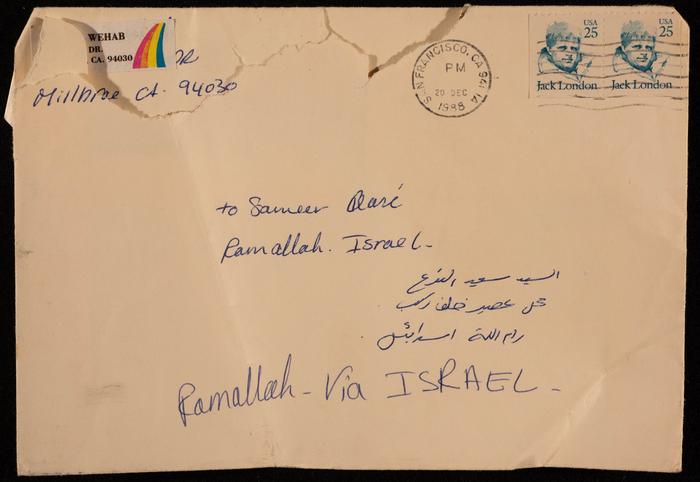 WEHAB
DR.
CA. 94030
DR
Millbrae CA. 94030
SAN FRANCISCO, CA 941
PM
20 DEC
1988
USA
25
Jack London
USA
25
Jack London
to Sameer
Ramallah. Israel-
السيد سعيد
محل عصير خلف ركب
رام الله اسرائيل
Ramallah - Via ISRAEL -